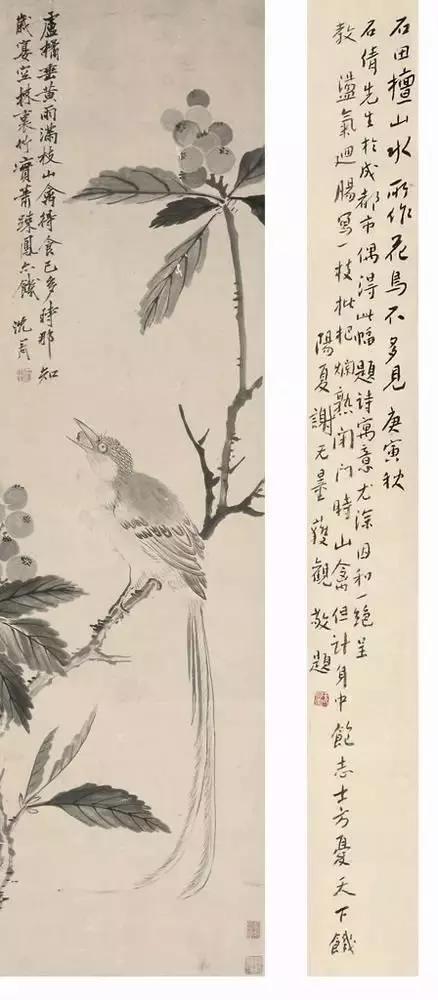 盧橘垂黃雨滿枝山禽得食已多時那知
歲宴空林裏竹實蕭疎鳳亦饑 沈周
石田檀山水所作花鳥不多見 庚寅秋
石倩先生於成都市偶得此幅題詩寓意尤深因和一絕呈
教 盪氣迴腸寫一枝枇杷爛熟閉門時山禽但計身中飽志士方憂天下饑
陽夏謝无量獲觀敬題